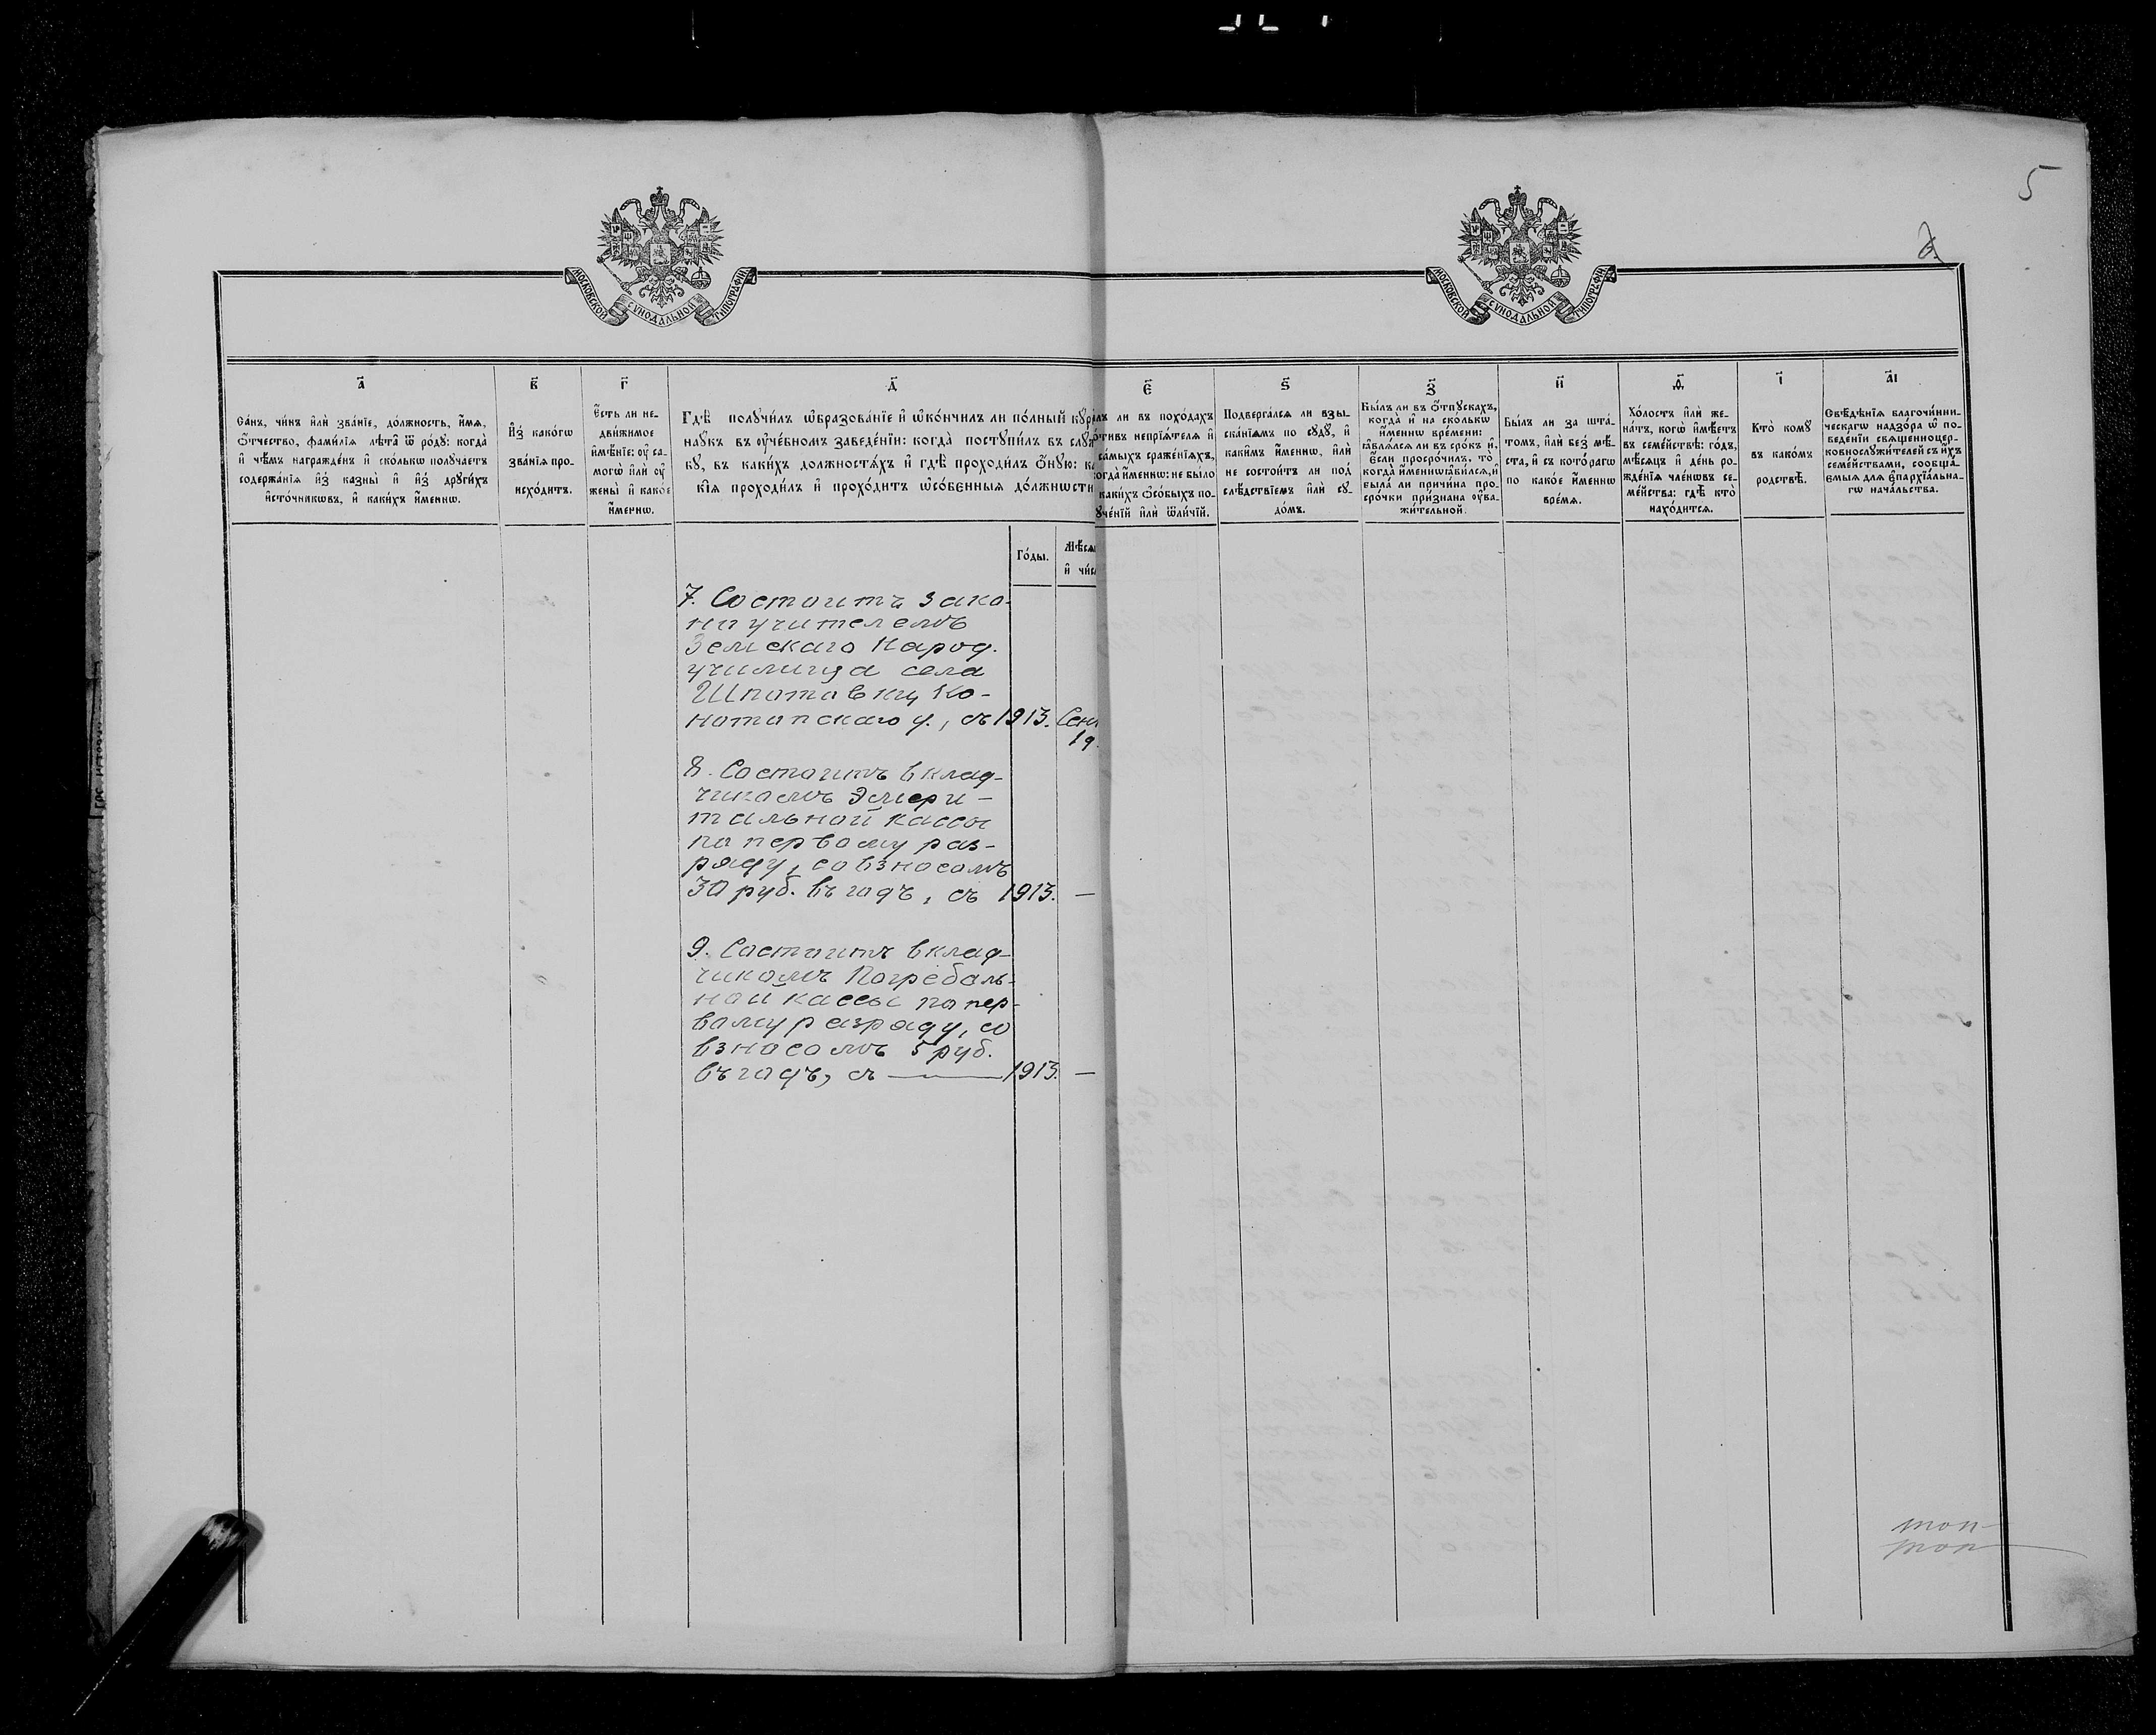 5
МОСКОВСКОЙ СѴНОДАЛЬНОЙ ТИПОГРАФІИ
МОСКОВСКОЙ СѴНОДАЛЬНОЙ ТИПОГРАФІИ
а҃
Са́нъ, чи́нъ и҆лѝ зва́нїе, до́лжность, и҆́мя,
ѻ҆́тчество, фами́лїя лѣ́та ѿ ро́дꙋ: когда̀
и҆ чѣ́мъ награжде́нъ и҆ ско́лькѡ получа́етъ
содержа́нїя и҆з̾ казны̀ и҆ и҆з̾ други́хъ
и҆сто́чникѡвъ, и҆ каки́хъ и҆́меннѡ.
в҃
И҆з̾ како́гѡ
зва́нїя про-
исхо́дитъ.
г҃
Є҆́сть ли не-
дви́жимое
и҆мѣ́нїе: ᲂу҆ са-
могѡ̀ и҆лѝ ᲂу҆
жены̀ и҆ како́е
и҆́меннѡ.
д҃
Гдѣ̀ получи́лъ ѡ҆бразова́нїе и҆ ѡ҆ко́нчилъ ли по́лный кꙋр
наꙋ́къ въ ᲂу҆че́бномъ заведе́нїи: когда̀ постꙋпи́лъ въ слꙋ
бꙋ, въ каки́хъ должностѧ́хъ и҆ гдѣ̀ проходи́лъ ѻ҆́нꙋю: ка
кі́ѧ проходи́лъ и҆ прохо́дитъ ѡ҆со́бенныѧ до́лжнѡсти
Го́ды.
Мѣ́сѧ
и҆ чи́с
є҃
лъ ли въ похо́дахъ
о́тивъ непрїѧ́телѧ и҆
са́мыхъ сраже́нїѧхъ,
когда̀ и҆́меннѡ: не бы́ло
каки́хъ ѻ҆со́быхъ по-
ꙋче́нїй и҆лѝ ѿли́чїй.
ѕ҃
Подверга́лсѧ ли взы-
ска́нїѧмъ по сꙋдꙋ̀, и҆
каки́мъ и҆́меннѡ, и҆лѝ
не состои́тъ ли под̾
слѣ́дствїемъ и҆лѝ сꙋ-
до́мъ.
з҃
Бы́лъ ли въ ѻ҆́тпꙋскахъ,
когда̀ и҆ на ско́лькѡ
и҆́меннѡ вре́мени:
ꙗ҆влѧ́лсѧ ли въ сро́къ и҆,
є҆́сли просро́чилъ, то̀
когда̀ и҆́меннѡ ꙗ҆ви́лсѧ, и҆
была̀ ли причи́на про-
сро́чки при́знана ᲂу҆ва-
жи́тельной.
и҃
Бы́лъ ли за шта́-
томъ, и҆лѝ без̾ мѣ́-
ста, и҆ съ кото́рагѡ
по како́е и҆́меннѡ
вре́мѧ.
ѳ҃
Хо́лостъ и҆лѝ же-
на́тъ, когѡ̀ и҆мѣ́етъ
въ семе́йствѣ: го́дъ,
мѣ́сѧцъ и҆ де́нь ро-
жде́нїѧ чле́нѡвъ се-
ме́йства: гдѣ̀ кто̀
нахо́дитсѧ.
і҃
Кто̀ комꙋ̀
въ како́мъ
родствѣ̀.
а҃і
Свѣ́дѣнїѧ благочи́нни-
ческагѡ надзо́ра ѡ҆ по-
веде́нїи свѧщенноцер-
ковнослꙋжи́телей съ и҆́хъ
семе́йствами, соѡбща́-
ємыѧ длѧ є҆парх їа́льна-
гѡ нача́льства.
7. Состоитъ зако-
ноучителемъ
Земскаго Народ.
училища села
Шпотовки, Ко-
нотопскаго у., съ 1913. Сен
19.
8. Состоитъ вклад-
чикомъ Эмери-
тальной кассы
по первому раз-
ряду, со взносомъ
30 руб. въ годъ, съ 1913. —
9. Состоитъ вклад-
чикомъ Погребаль-
ной кассы по пер-
вому разряду, со
взносомъ 5 руб.
въ годъ, съ — 1913. —
топ-
топ